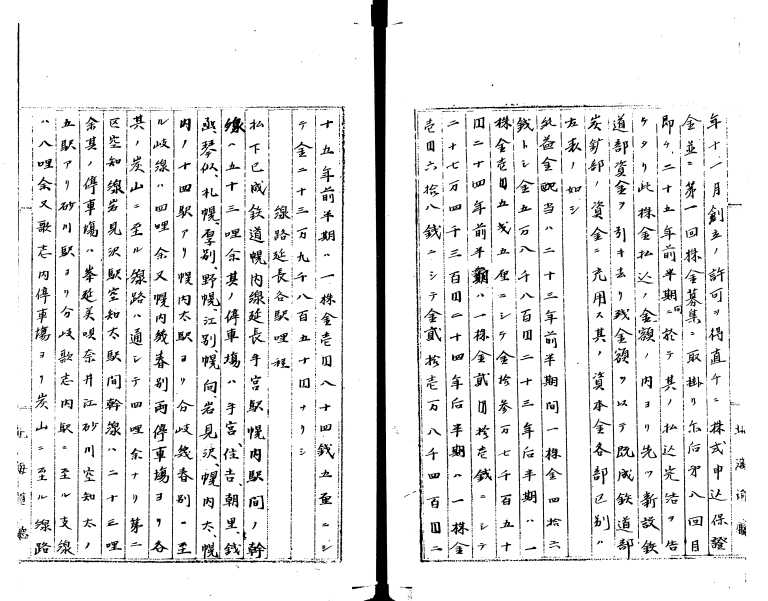 年十一月創立ノ許可ヲ得直ケニ株式申込保證
金並ニ第一回株金募集ニ取掛リ尓后第八回目
即チ二十五年前半期間ニ於テ其ノ払込完結ヲ告
ケタリ此株金払込ノ金額ノ内ヨリ先ツ新設鉄
道部資金ヲ引キ去リ残金額ヲ以テ既成鉄道部
炭鉱部ノ資金ニ充用ス其ノ資本金各部区別ハ
左表ノ如シ
純益金配当ハ二十三年前半期間一株金四拾六
銭トシ金五万八千八百円二十三年后半期ハ一
株金壱円五戔五厘ニシテ金拾参万七千百五十
円二十四年前半期ハ一株金貳円拾壱銭ニシテ
二十七万四千三百円二十四年后半期ハ一株金
壱円六拾八銭ニシテ金貳拾壱万八千四百円二
十五年前半期ハ一株金壱円八十四銭五厘ニシ
テ金二十三万九千八百五十円ナリシ
線路延長各駅哩程
払下已成鉄道幌内線延長手宮駅幌内駅間ノ幹
線ハ五十三哩余其ノ停車場ハ手宮、住吉、朝里、銭
函、琴似、札幌、厚別、野幌、江別、幌向、岩見沢、幌内太、幌
内ノ十四駅アリ幌内太駅ヨリ分岐幾春別ニ至
ル岐線ハ四哩余又幌内幾春別両停車場ヨリ各
其ノ炭山ニ至ル線路ハ通シテ四哩余ナリ第二
区空知線岩見沢駅空知太駅間幹線ハ二十三哩
余其ノ停車場ハ峯延美唄奈井江砂川空知太ノ
五駅アリ砂川駅ヨリ分岐歌志内駅ニ至ル支線
ハ八哩余又歌志内停車場ヨリ炭山ニ至ル線路